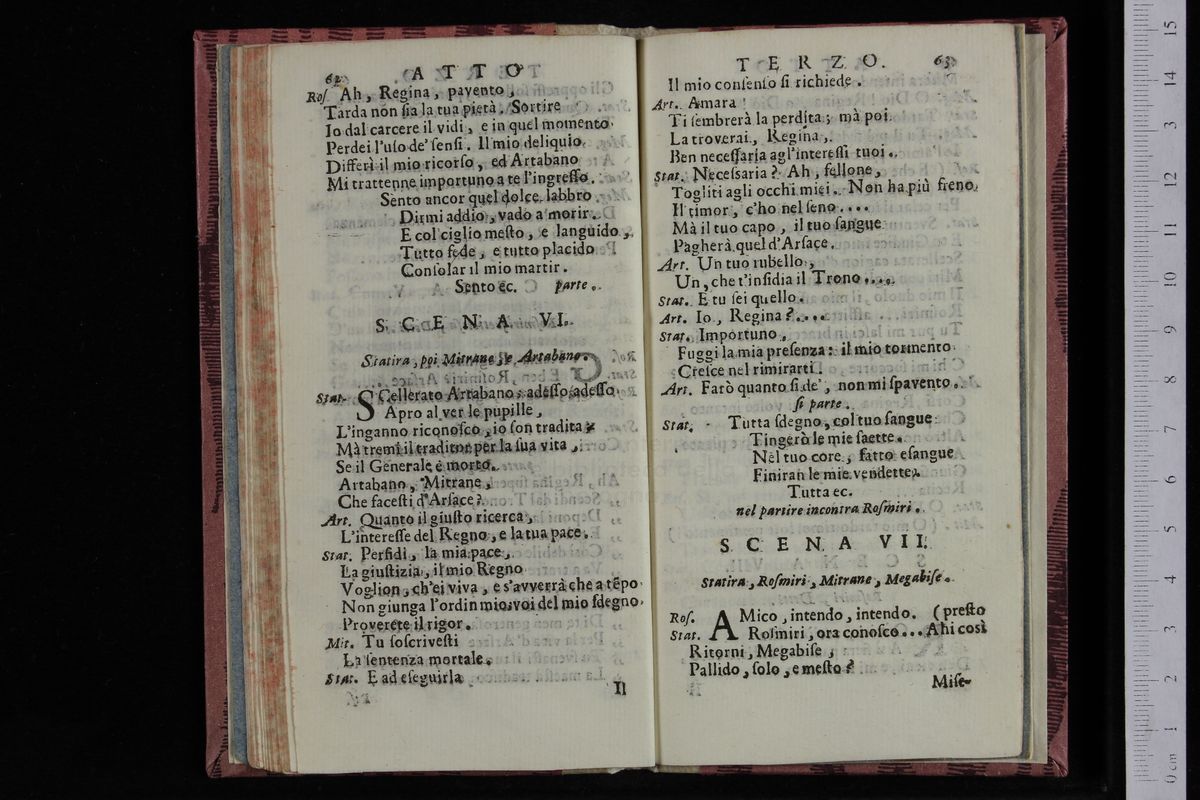 62 ATTO
Roſ. Ah, Regina, pavento,
Tarda non ſia la tua pietà. Sortire
Io dal carcere il vidi, e in quel momento
Perdei l'uſo de' ſenſi. Il mio deliquio
Differì il mio ricorſo, ed Artabano
Mi trattenne importuno a te l'ingreſſo.
Sento ancor quel dolce labbro
Dirmi addio, vado a morir.
E col ciglio meſto, e languido,
Tutto fede, e tutto placido
Conſolar il mio martir.
Sento ec. parte.
SCENA VI.
Statira, poi Mitrane, e Artabano.
Stat. SCellerato Artabano; adeſſo, adeſſo
Apro al ver le pupille,
L'inganno riconoſco, io ſon tradita
Mà tremi il traditor per la ſua vita,
Se il Generale è morto.
Artabano, Mitrane,
Che faceſti d'Arſace?
Art. Quanto il giuſto ricerca,
L'intereſſe del Regno, e la tua pace.
Stat. Perfidi, la mia pace,
La giuſtizia, il mio Regno
Voglion, ch'ei viva, e s'avverrà che a tẽpo
Non giunga l'ordin mio, voi del mio ſdegno
Proverete il rigor.
Mit. Tu ſoſcriveſti
La ſentenza mortale.
Stat. E ad eſeguirla
Il
TERZO. 63
Il mio conſenſo ſi richiede.
Art. Amara
Ti ſembrerà la perdita; mà poi
La troverai, Regina,
Ben neceſſaria agl'intereſſi tuoi.
Stat. Neceſsaria? Ah, fellone,
Togliti agli occhi miei. Non ha più freno
Il timor, c'ho nel ſeno....
Mà il tuo capo, il tuo ſangue
Pagherà quel d'Arſace.
Art. Un tuo rubello,
Un, che t'inſidia il Trono....
Stat. E tu ſei quello.
Art. Io, Regina?....
Stat. Importuno,
Fuggi la mia preſenza: il mio tormento
Creſce nel rimirarti.
Art. Farò quanto ſi de', non mi ſpavento.
ſi parte.
Stat. Tutta ſdegno, col tuo ſangue
Tingerò le mie ſaette.
Nel tuo core, fatto eſangue
Finiran le mie vendette.
Tutta ec.
nel partire incontra Roſmiri.
SCENA VII.
Statira, Roſmiri, Mitrane, Megabiſe.
Roſ. AMico, intendo, intendo. (preſto
Stat. Roſmiri, ora conoſco... Ahi così
Ritorni, Megabiſe,
Pallido, ſolo, e meſto?
Miſe-